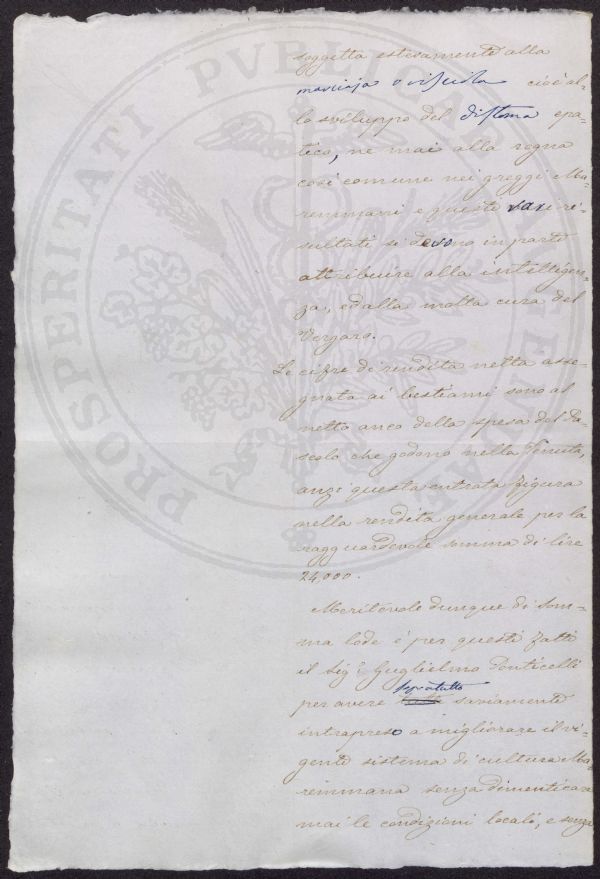 soggetta estesamente alla
marciaja o visciola cioè al-
lo sviluppo del distoma epa-
tico, ne mai alla rogna
così comune nei greggi Ma-
remmani e questi rari ri-
sultati si devono in parte
attribuire alla intelligen-
za, ed alla molta cura del
Vergaro.
Le cifre di rendita netta asse-
gnata ai bestiami sono al
netto anco della spesa del Pa-
scolo che godono nella Tenuta,
anzi questa entrata figura
nella rendita generale per la
ragguardevole somma di lire
24,000.
Meritevole dunque di som-
ma lode è per questi fatti
il Sig.r Guglielmo Ponticelli
sopratutto
per avere saviamente
intrapreso a migliorare il vi-
gente sistema di cultura Ma-
remmana senza dimenticare
mai le condizioni locali, e senza
PROSPERITATI PVBLICAE AVGENDAE